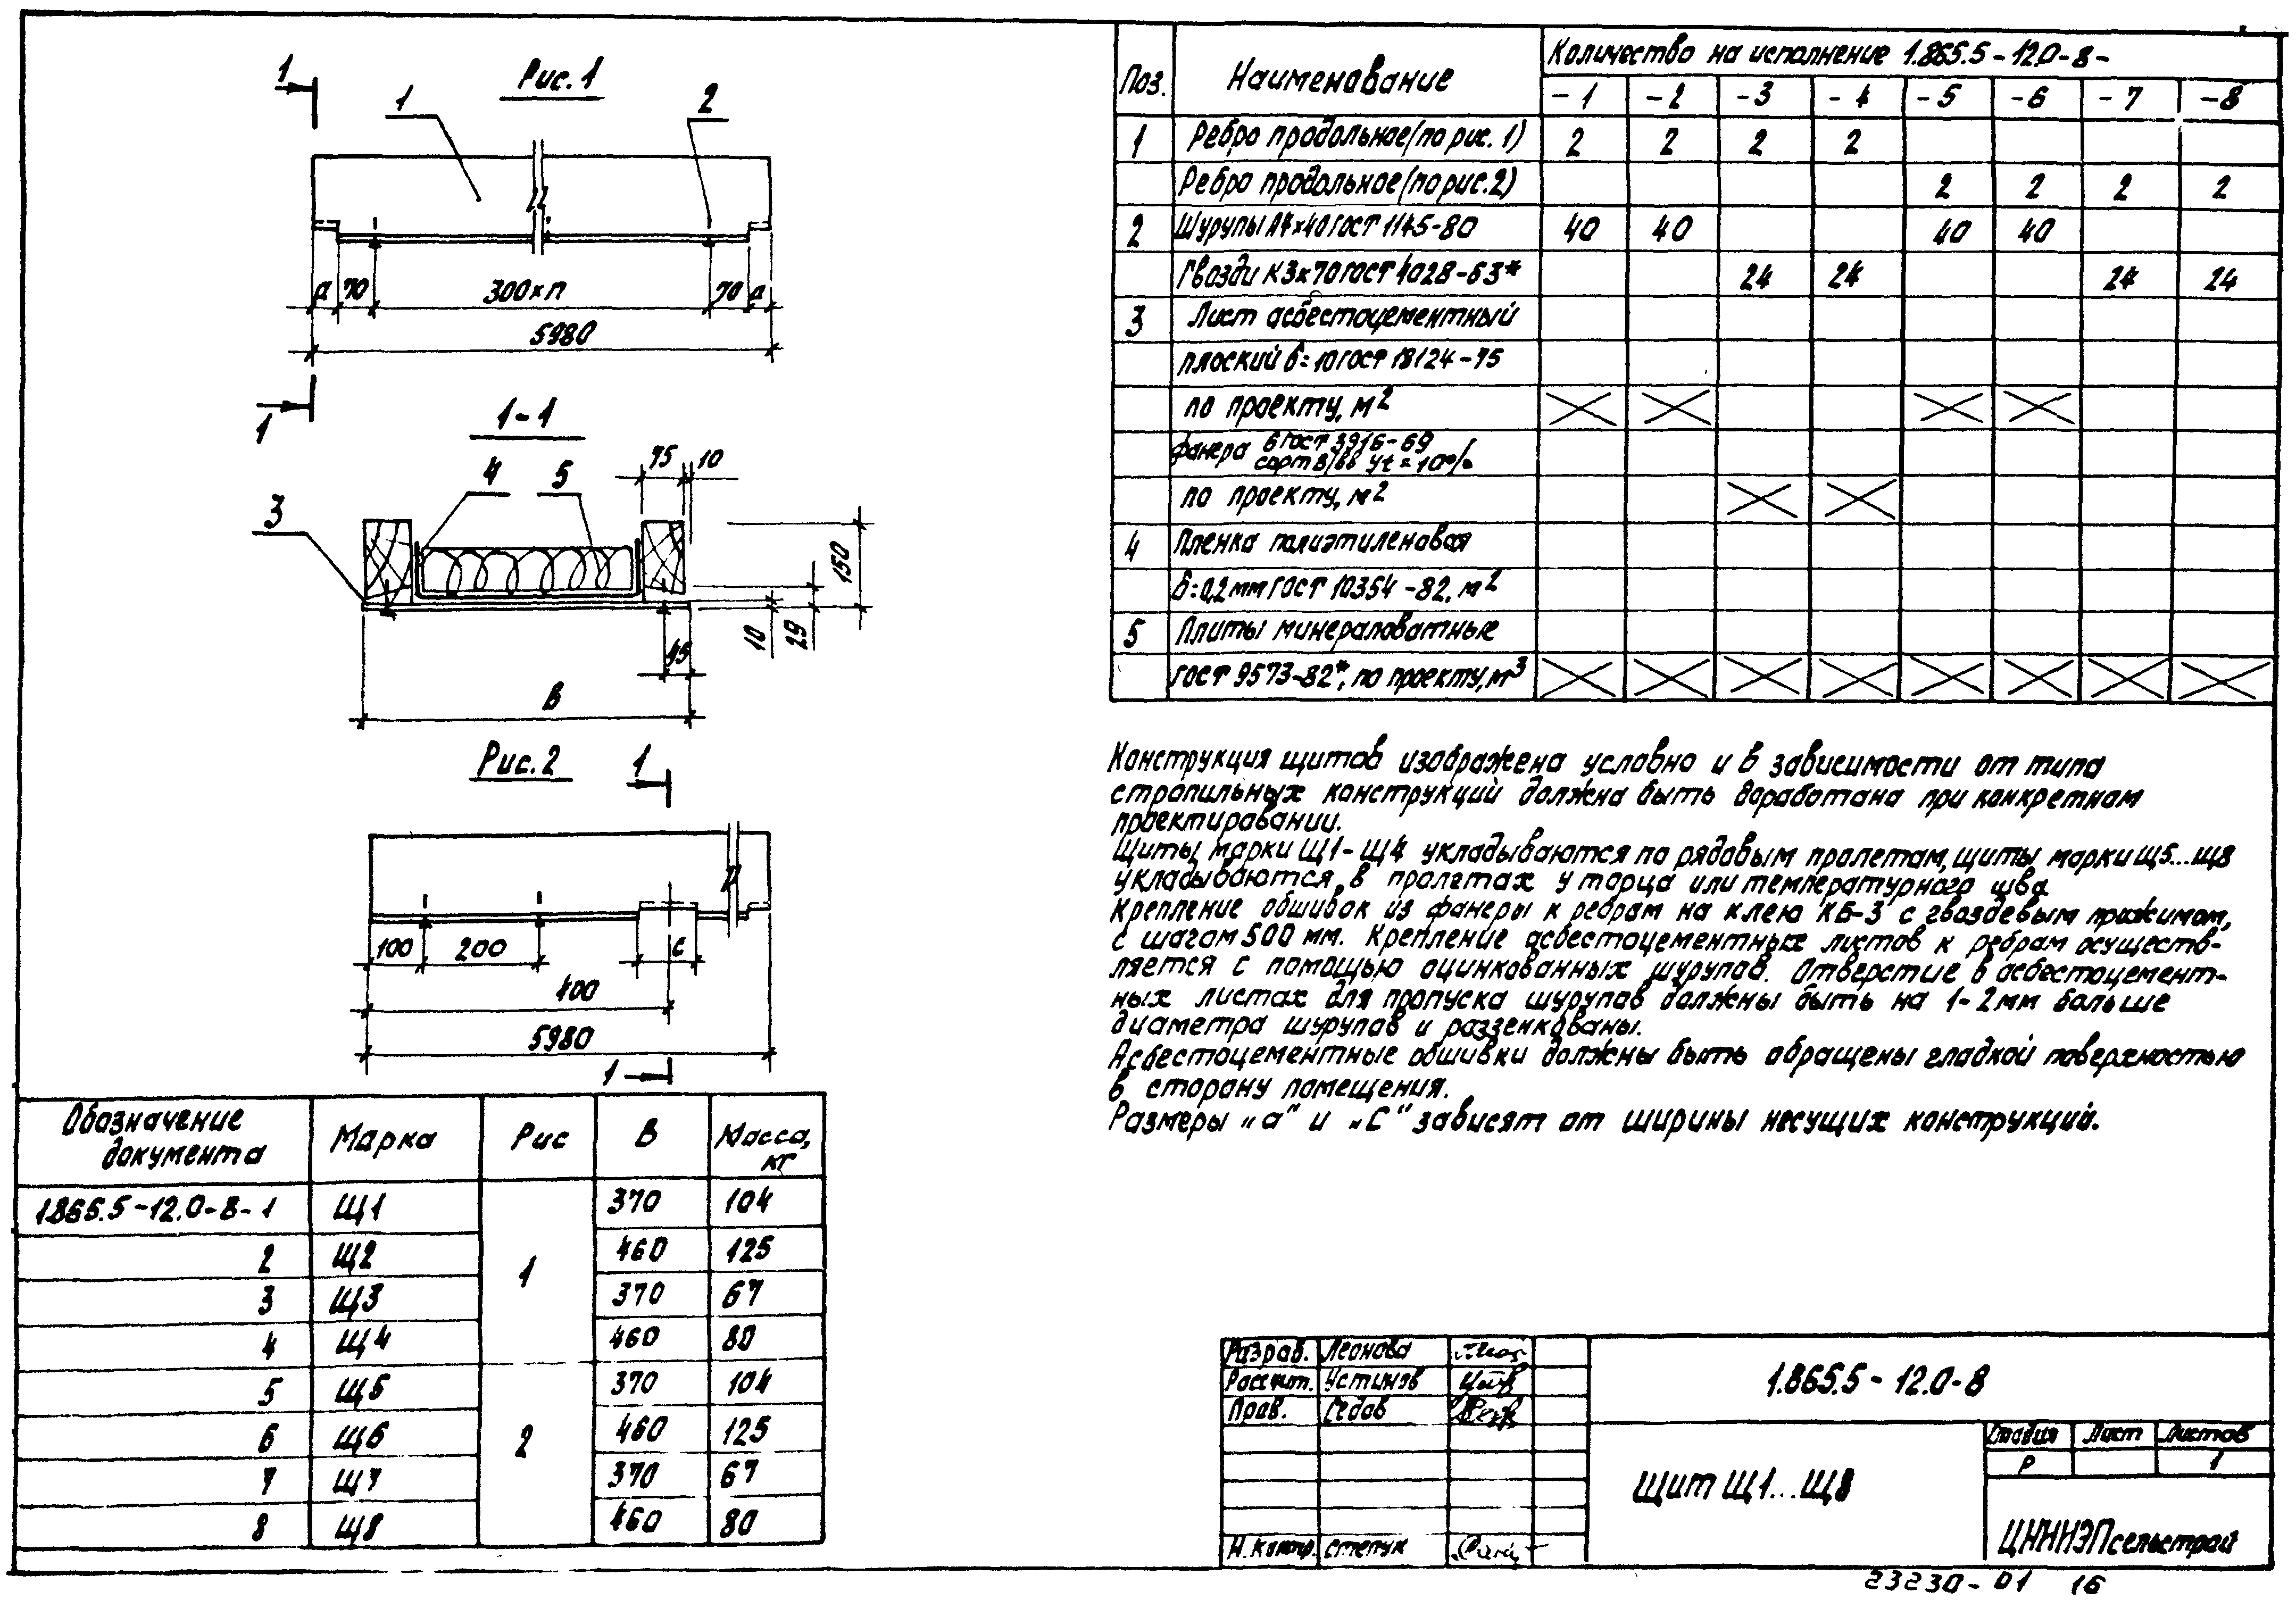 Рис. 1
1
1
2
1
а 70 300×п 70 а
5980
1
1-1
4 5 75 10
3
150
10 29
45
В
Рис. 2
1
100 200 С
400
5980
1
Обозначение документа Марка Рис В Масса, кг
1.865.5-12.0-8-1 Щ1 1 370 104
2 Щ2 460 125
3 Щ3 370 67
4 Щ4 460 80
5 Щ5 2 370 104
6 Щ6 460 125
7 Щ7 370 67
8 Щ8 460 80
Поз. Наименование Количество на исполнение 1.865.5-12.0-8-
-1 -2 -3 -4 -5 -6 -7 -8
1 Ребро продольное (по рис. 1) 2 2 2 2
Ребро продольное (по рис. 2) 2 2 2 2
2 Шурупы А4×40 ГОСТ 1145-80 40 40 40 40
Гвозди К3×70 ГОСТ 4028-63* 24 24 24 24
3 Лист асбестоцементный
плоский б=10 ГОСТ 18124-75
по проекту, м2
Фанера 6 ГОСТ 3916-69
сорт В/ВВ Уt=10%
по проекту, м2
4 Пленка полиэтиленовая
б=0,2мм ГОСТ 10354-82, м2
5 Плиты минераловатные
ГОСТ 9573-82*, по проекту, м3
Конструкция щитов изображена условно и в зависимости от типа
стропильных конструкций должна быть доработана при конкретном
проектировании.
Щиты марки Щ1-Щ4 укладываются по рядовым пролетам, щиты марки Щ5...Щ8
укладываются в пролетах у торца или температурного шва
Крепление обшивок из фанеры к ребрам на клею КБ-3 с гвоздевым прижимом,
с шагом 500 мм. Крепление асбестоцементных листов к ребрам осуществ-
ляется с помощью оцинкованных шурупов. Отверстие в асбестоцемент-
ных листах для пропуска шурупов должны быть на 1-2мм больше
диаметра шурупов и раззенкованы.
Асбестоцементные обшивки должны быть обращены гладкой поверхностью
в сторону помещения.
Размеры „а" и „С" зависят от ширины несущих конструкций.
Разраб. Леонова
Рассчит. Устинов
Пров. Седов
Н.контр. Степук
1.865.5-12.0-8
Щит Щ1...Щ8
Стадия Лист Листов
Р 1
ЦНИИЭПсельстрой
23230-01 16